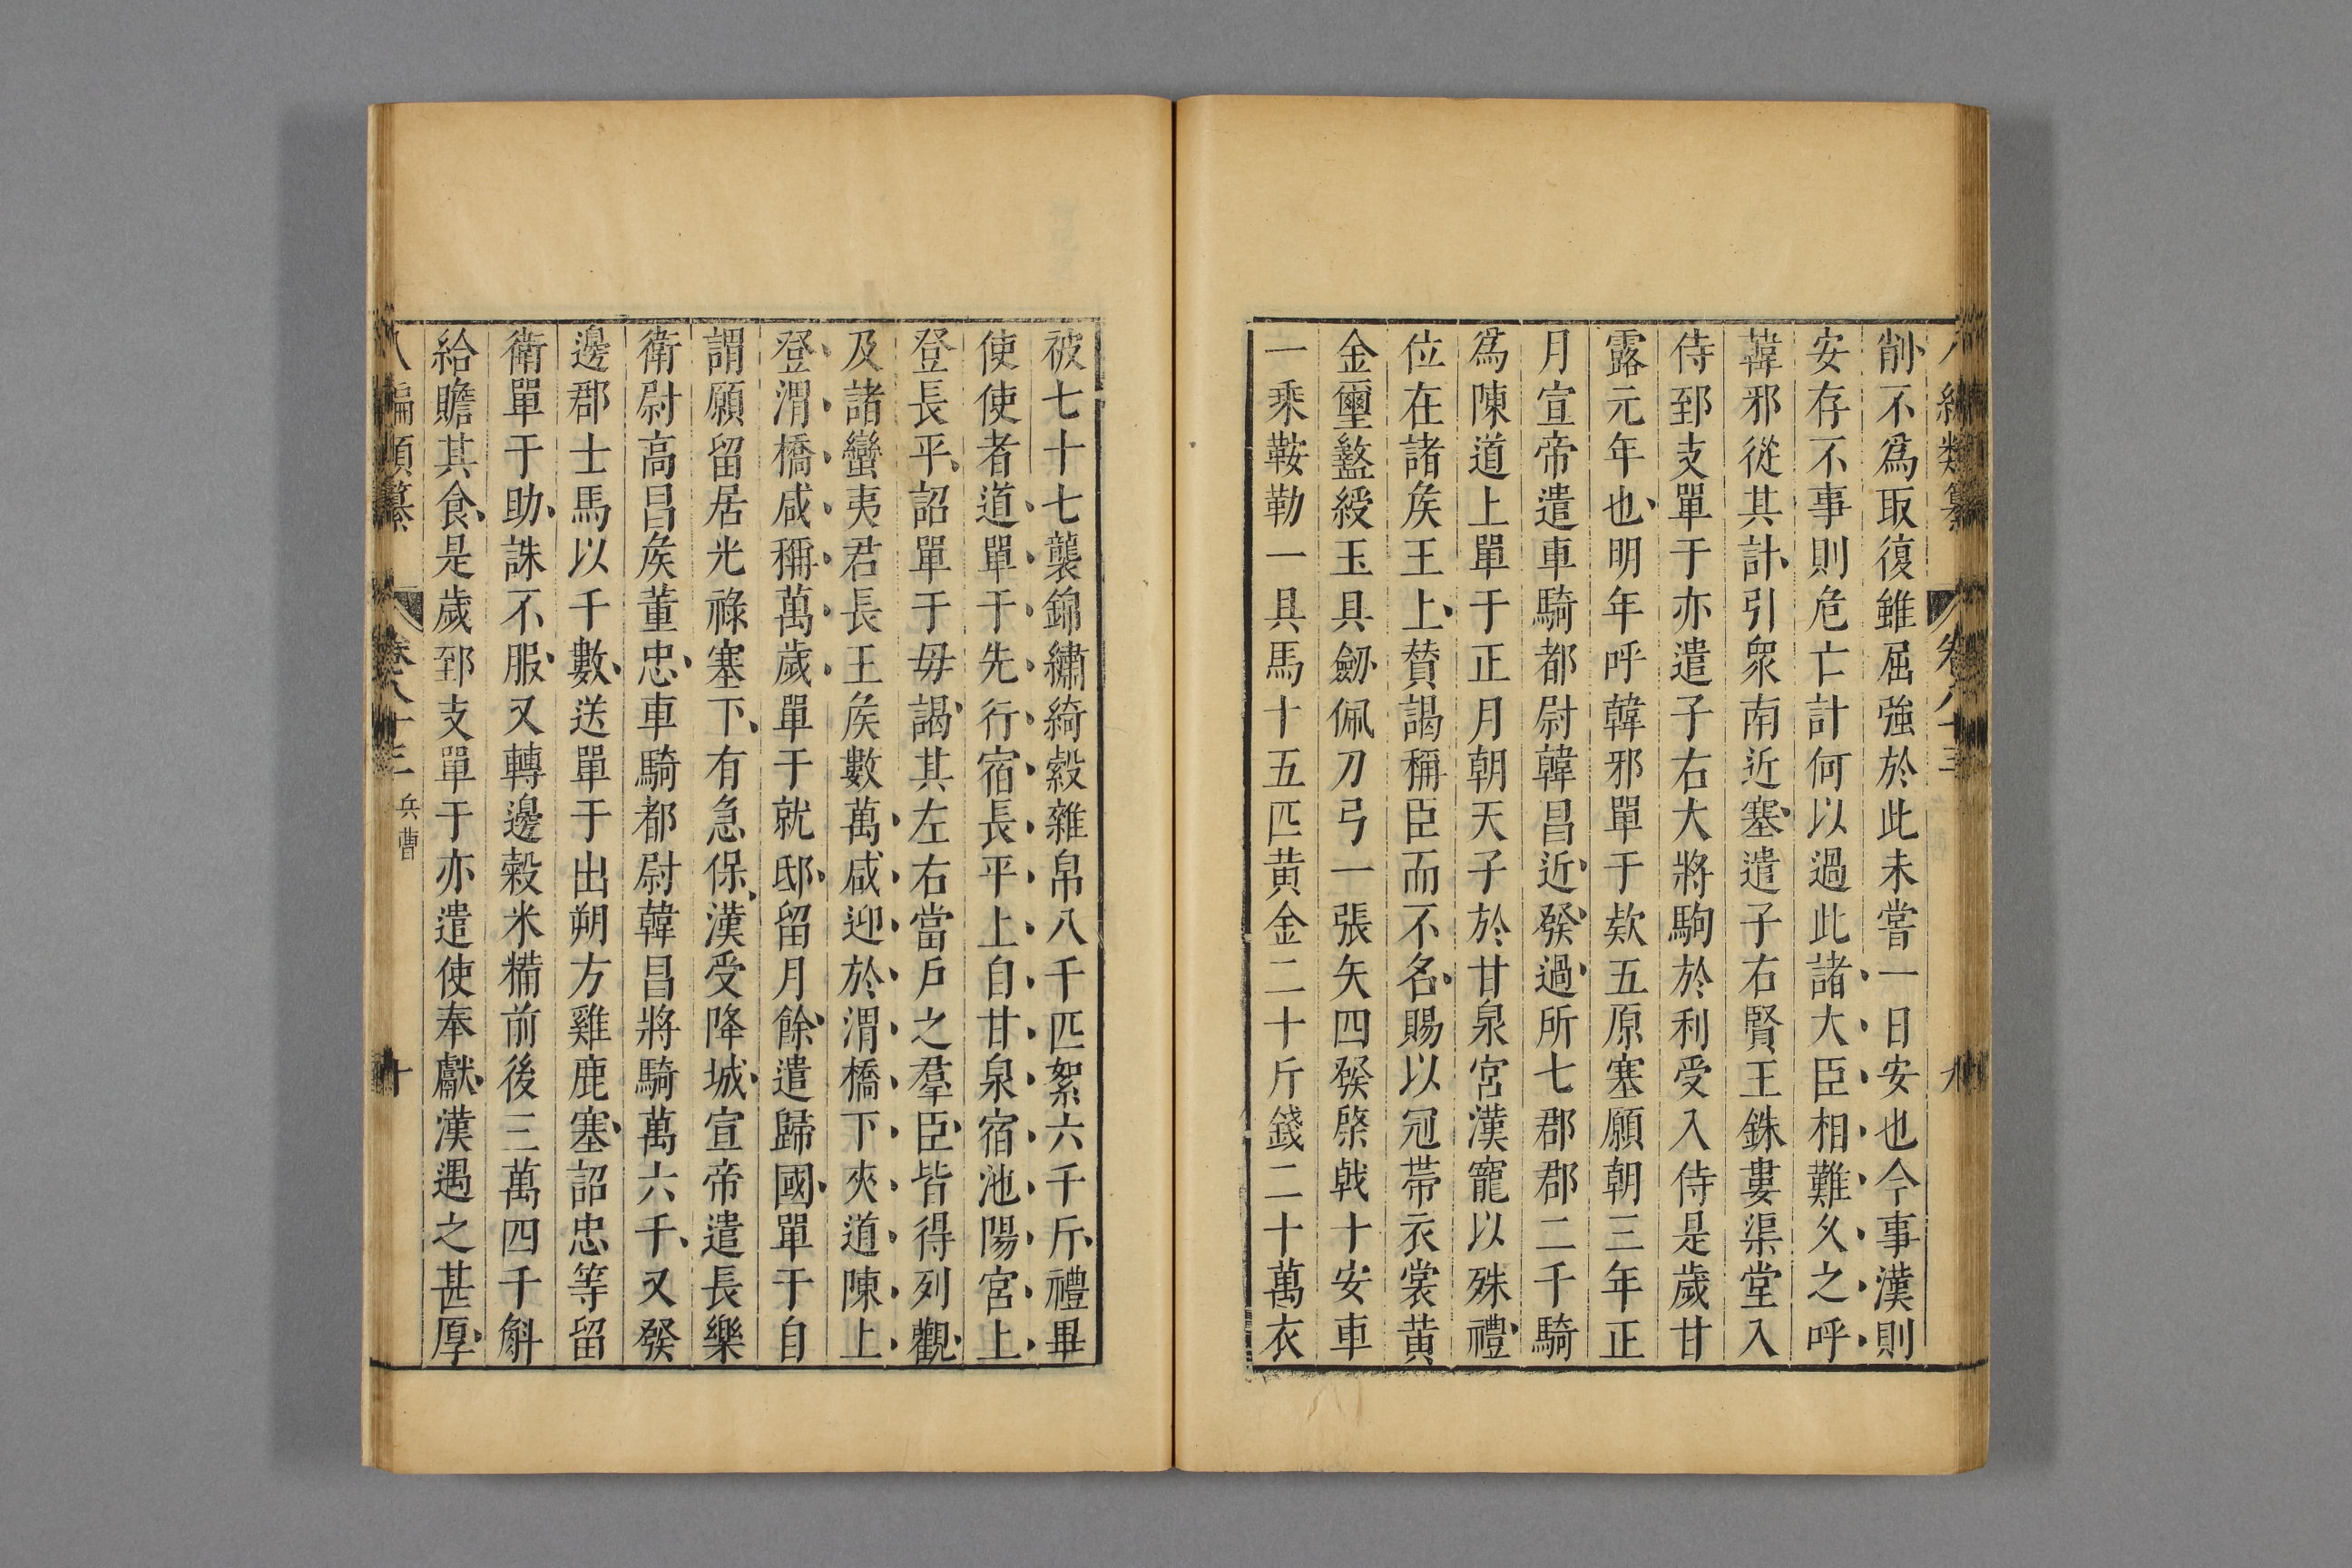 八編類纂 卷八十三 九
削不爲取復雖屈強於此未嘗一日安也今事漢則
安存不事則危亡計何以過此諸大臣相難久之呼
韓邪從其計引衆南近塞遣子右賢王銖婁渠堂入
侍郅支單于亦遣子右大將駒於利受入侍是歲甘
露元年也明年呼韓邪單于欵五原塞願朝三年正
月宣帝遣車騎都尉韓昌近發過所七郡郡二千騎
爲陳道上單于正月朝天子於甘泉宮漢寵以殊禮
位在諸矦王上賛謁稱臣而不名賜以冠帶衣裳黄
金璽盭綬玉具劒佩刀弓一張矢四發棨戟十安車
一乘鞍勒一具馬十五匹黄金二十斤錢二十萬衣
被七十七襲錦繡綺縠雜帛八千匹絮六千斤禮畢
使使者道單于先行宿長平上自甘泉宿池陽宮上
登長平詔單于毋謁其左右當戶之羣臣皆得列觀
及諸蠻夷君長王矦數萬咸迎於渭橋下夾道陳上
登渭橋咸稱萬歲單于就邸留月餘遣歸國單于自
謂願留居光祿塞下有急保漢受降城宣帝遣長樂
衛尉高昌矦董忠車騎都尉韓昌將騎萬六千又發
邊郡士馬以千數送單于出朔方雞鹿塞詔忠等留
衛單于助誅不服又轉邊穀米糒前後三萬四千斛
給贍其食是歲郅支單于亦遣使奉獻漢遇之甚厚
八編類纂 卷八十三 兵曹 十